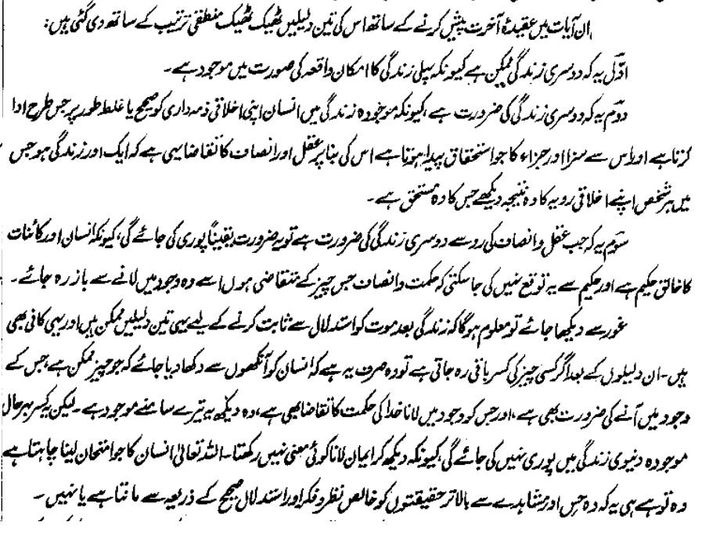 ان آیات میں عقیدۂ آخرت پیش کرنے کے ساتھ اس کی تین دلیلیں ٹھیک ٹھیک منطقی ترتیب کے ساتھ دی گئی ہیں:
اوّل یہ کہ دوسری زندگی ممکن ہے کیونکہ پہلی زندگی کا امکان واقعہ کی صورت میں موجود ہے۔
دوم یہ کہ دوسری زندگی کی ضرورت ہے، کیونکہ موجودہ زندگی میں انسان اپنی اخلاقی ذمہ داری کو صحیح یا غلط طور پر جس طرح ادا
کرتا ہے اور اس سے سزا اور جزاء کا جو استحقاق پیدا ہوتا ہے اس کی بنا پر عقل اور انصاف کا تقاضا یہی ہے کہ ایک اور زندگی ہو جس
میں ہر شخص اپنے اخلاقی رویہ کا وہ نتیجہ دیکھے جس کا وہ مستحق ہے۔
سوم یہ کہ جب عقل و انصاف کی رو سے دوسری زندگی کی ضرورت ہے تو یہ ضرورت یقیناً پوری کی جائے گی، کیونکہ انسان اور کائنات
کا خالق حکیم ہے اور حکیم سے یہ توقع نہیں کی جا سکتی کہ حکمت و انصاف جس چیز کے متقاضی ہوں اسے وہ وجود میں لانے سے باز رہ جائے۔
غور سے دیکھا جائے تو معلوم ہوگا کہ زندگی بعد موت کو استدلال سے ثابت کرنے کے لیے یہی تین دلیلیں ممکن ہیں اور یہی کافی بھی
ہیں۔ ان دلیلوں کے بعد اگر کسی چیز کی کسر باقی رہ جاتی ہے تو وہ صرف یہ ہے کہ انسان کو آنکھوں سے دکھا دیا جائے کہ جو چیز ممکن ہے، جس کے
وجود میں آنے کی ضرورت بھی ہے، اور جس کو وجود میں لانا خدا کی حکمت کا تقاضا بھی ہے، وہ دیکھ یہ تیرے سامنے موجود ہے۔ لیکن یہ کسر بہرحال
موجودہ دنیوی زندگی میں پوری نہیں کی جائے گی، کیونکہ دیکھ کر ایمان لانا کوئی معنی نہیں رکھتا۔ اللہ تعالیٰ انسان کا جو امتحان لینا چاہتا ہے
وہ تو ہے ہی یہ کہ وہ حس اور مشاہدے سے بالاتر حقیقتوں کو خالص نظر و فکر اور استدلال صحیح کے ذریعہ سے مانتا ہے یا نہیں۔